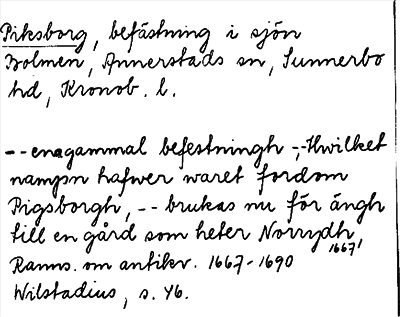 Piksborg, befästning i sjön
Bolmen, Annerstads sn, Sunnerbo
hd, Kronob. l.
-- enagammal befestningh -,-Hwilket
nampn hafwer waret fordom
Pigsborgh, -- brukas nu för ängh
till en gård som heter Norrydh,
1667
Ranns. om antikv. 1667-1690
Wilstadius, s. 46.